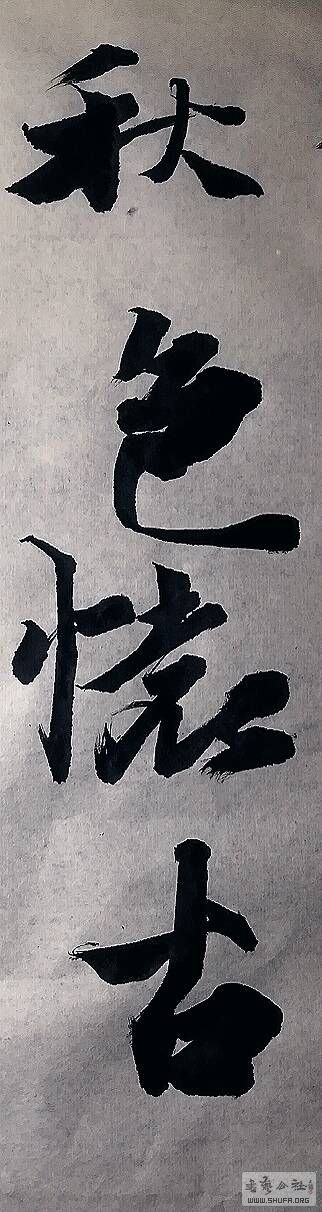 秋色懷古
书艺公社
WWW.SHUFA.ORG